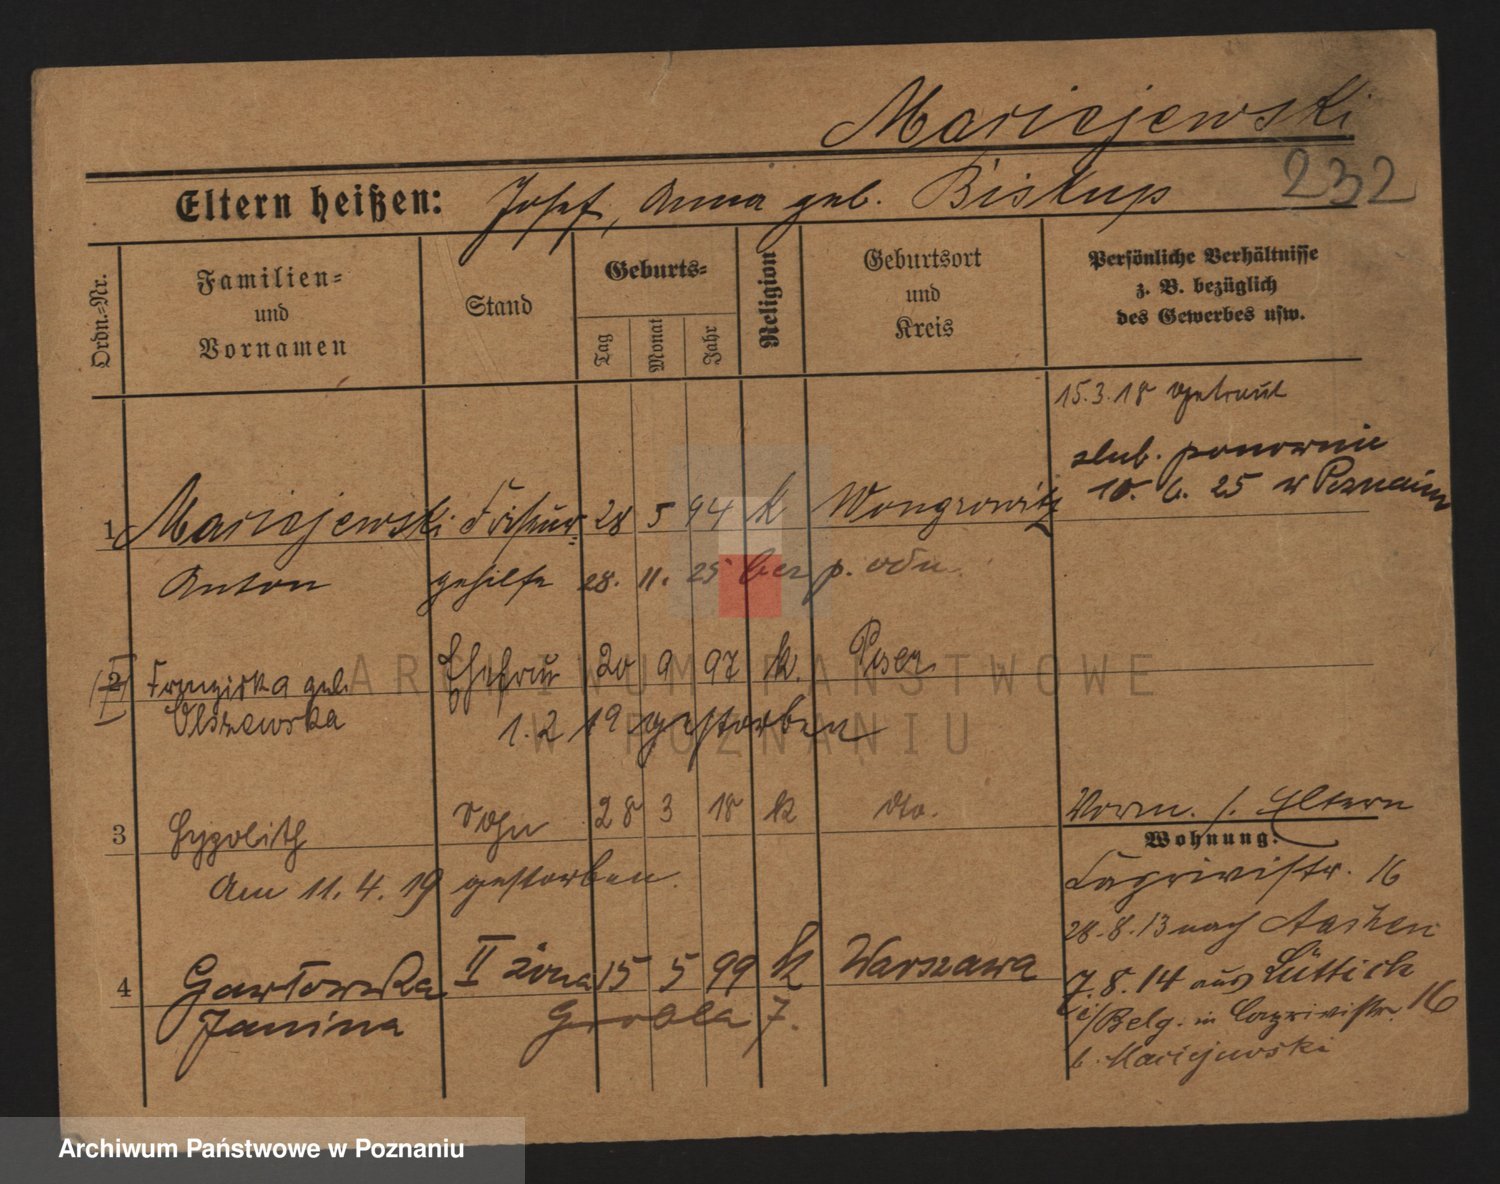 Maciejewski
232
Eltern heißen: Josef, Anna geb. Biskup
Ordn.-Nr.
Familien-
und
Vornamen
Stand
Geburts-
Tag
Monat
Jahr
Religion
Geburtsort
und
Kreis
Persönliche Verhältnisse
z. B. bezüglich
des Gewerbes usw.
15.3.18 getraut
ślub. ponownie
10. 6. 25 w Poznaniu
1 Maciejewski Friseur- 28 5 94 k Wongrowitz
Anton gehilfe 28. 11. 25 bez p. odn.
2 Franziska geb. Ehefrau 20 9 97 k. Posen
Olszewska 1. 2 19 gestorben
3 Hyppolith Sohn 28 3 18 k do.
Am 11. 4. 19 gestorben.
Vorm. s. Eltern
Wohnung:
Caprivistr. 16
28.8.13 nach Aachen
7.8.14 aus Lüttich
i/Belg. in Caprivistr. 16
b. Maciejewski
4 Gawłowska II żona 15 5 99 k Warszawa
Janina Grobla 7.
ARCHIWUM PAŃSTWOWE
W POZNANIU
Archiwum Państwowe w Poznaniu